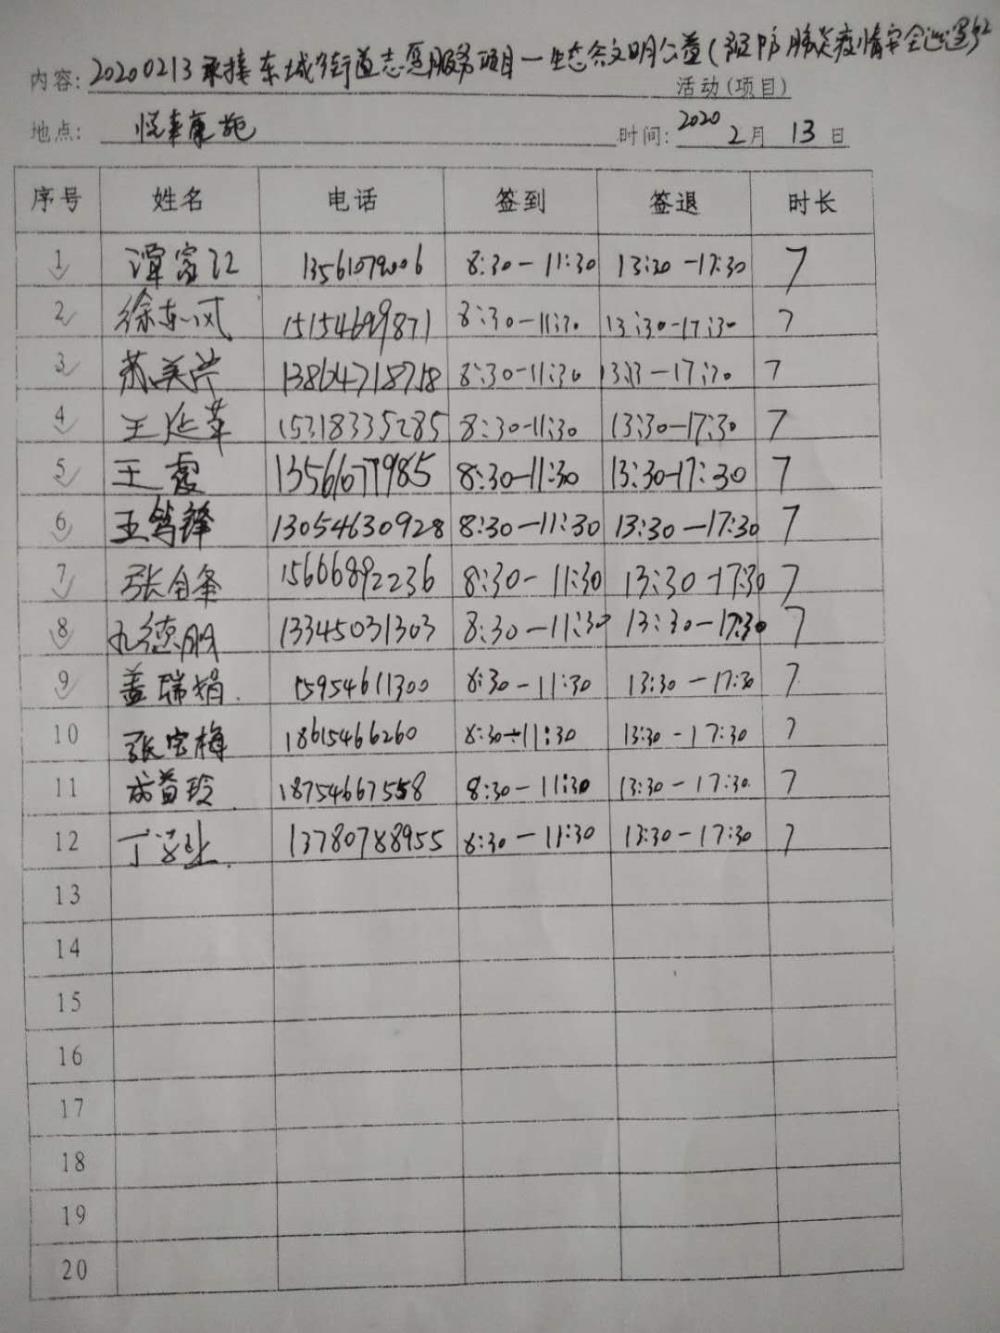 内容: 20200213承接东城街道志愿服务项目一生态文明公益(预防肺炎疫情安全巡逻
活动(项目)
地点: 时间: 2020 2月 13日
序号 姓名 电话 签到 签退 时长
1 谭富江 13561079006 8:30-11:30 13:30-17:30 7
2 徐东风 15154699871 8:30-11:30 13:30-17:30 7
3 苏美兰 13864718718 8:30-11:30 13:3-17:30 7
4 王延革 15318335285 8:30-11:30 13:30-17:30 7
5 王霞 13561677985 8:30-11:30 13:30-17:30 7
6 王笃锋 13054630928 8:30-11:30 13:30-17:30 7
7 张自条 15606892236 8:30-11:30 13:30-17:30 7
8 孔德朋 13345031303 8:30-11:30 13:30-17:30 7
9 盖瑞娟. 15954611300 8:30-11:30 13:30-17:30 7
10 张宝梅 18615466260 8:30-11:30 13:30-17:30 7
11 成益玲 18754667558 8:30-11:30 13:30-17:30 7
12 丁 13780788955 8:30-11:30 13:30-17:30 7
13
14
15
16
17
18
19
20